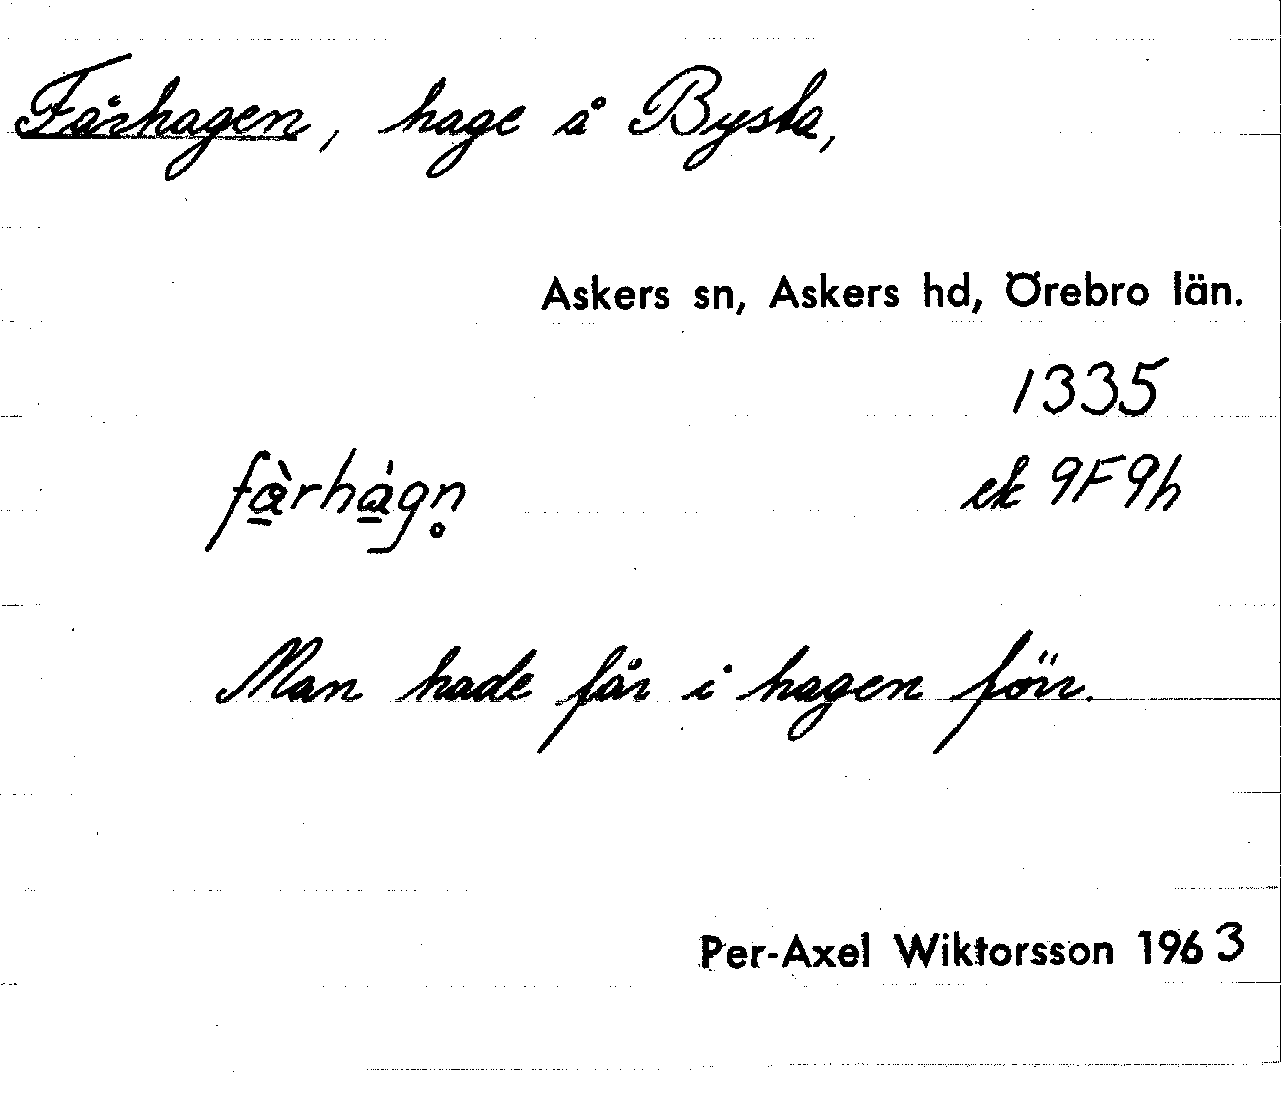 Fårhagen, hage å Bysta,
Askers sn, Askers hd, Örebro län.
1335
fàrhágn̥ ek 9F9h
Man hade får i hagen förr.
Per-Axel Wiktorsson 1963